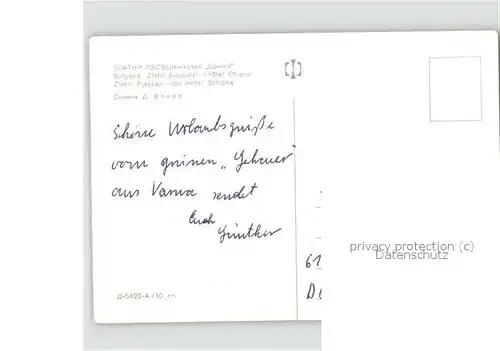 ЗЛАТНИ ПЯСЪЦИ — хотел „Шипка"
Bulgaria. Zlatni piassatzi — Hôtel Chipka
Zlatni Pjassazi — das Hotel Schipka
Снимка Д. Влаев
Schöne Urlaubsgrüße
vom grünen „
aus Varna sendet
Euch
Günther
61
D
privacy protection (c)
Datenschutz
Д-5422-А / 10,